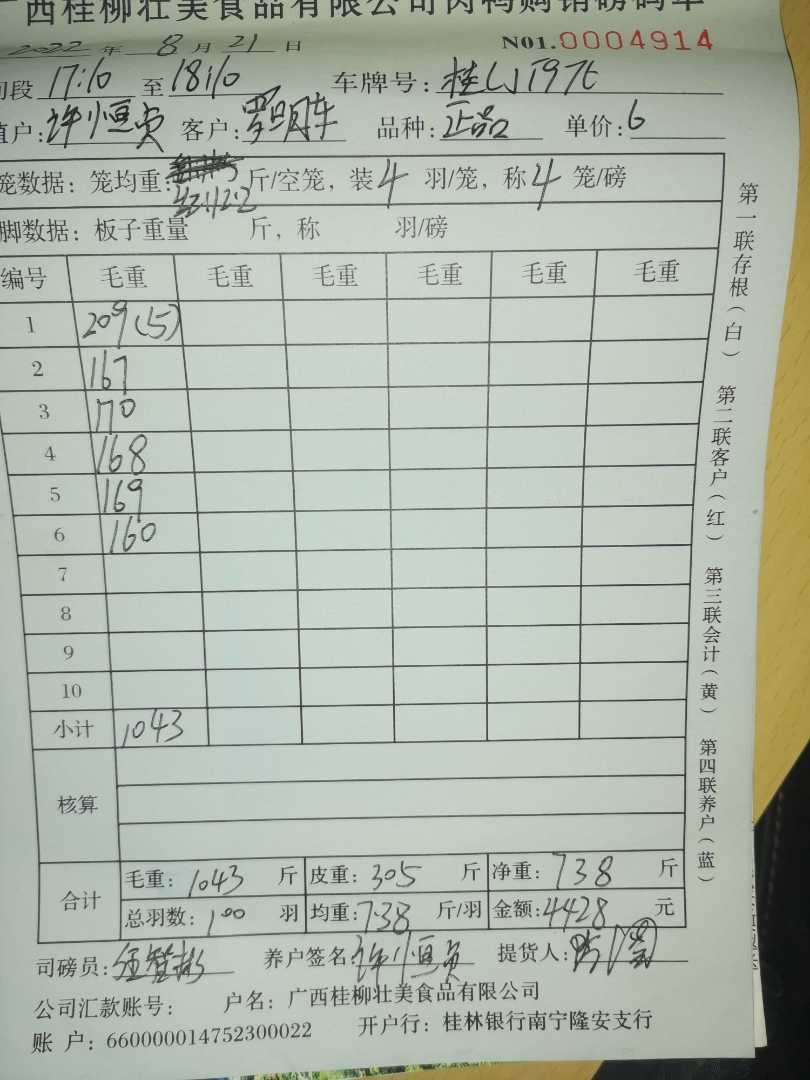 广西桂柳壮美食品有限公司肉鸭购销磅码单
2022 年 8 月 21 日 N01.0004914
间段 17:10 至 18:10 车牌号:
户: 许恒贞 客户: 罗明车 品种: 正品 单价: 6
笼数据: 笼均重: 12.2 斤/空笼, 装 4 羽/笼, 称 4 笼/磅
脚数据: 板子重量 斤, 称 羽/磅
编号 毛重 毛重 毛重 毛重 毛重 毛重
1 209(5)
2 167
3 170
4 168
5 169
6 160
7
8
9
10
小计 1043
核算
合计 毛重: 1043 斤 皮重: 305 斤 净重: 738 斤
总羽数: 100 羽 均重: 7.38 斤/羽 金额: 4428 元
司磅员: 养户签名: 许恒贞 提货人:
公司汇款账号: 户名: 广西桂柳壮美食品有限公司
账 户: 660000014752300022 开户行: 桂林银行南宁隆安支行
第一联存根(白) 第二联客户(红) 第三联会计(黄) 第四联养户(蓝)